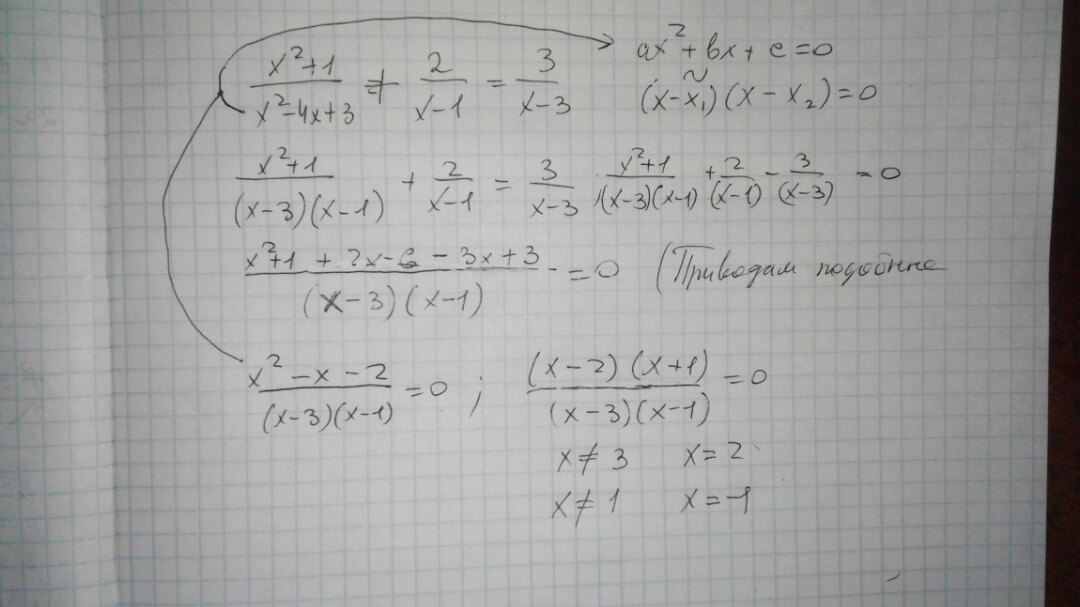 (x²+1)/(x²-4x+3) + 2/(x-1) = 3/(x-3)
ax² + bx + c = 0
(x-x₁)(x-x₂) = 0
(x²+1)/((x-3)(x-1)) + 2/(x-1) = 3/(x-3)
(x²+1)/((x-3)(x-1)) + 2/(x-1) - 3/(x-3) = 0
(x²+1 + 2x-6 - 3x+3)/((x-3)(x-1)) = 0 (Приводам подобные
(x²-x-2)/((x-3)(x-1)) = 0 ; ((x-2)(x+1))/((x-3)(x-1)) = 0
x≠3 x=2
x≠1 x=-1